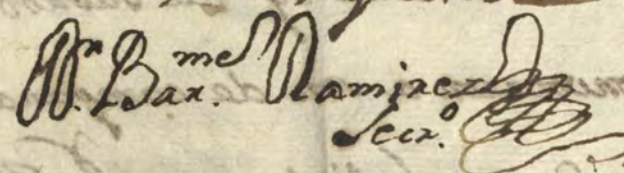 Bar.me Ramirez
Secr.o